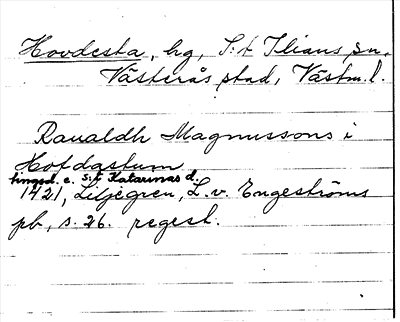 Hovdesta, hg, S:t Ilians sn.
Västerås stad, Västm. l.
Ravaldh Magnussons i
Hofdastum
tingsd. e. S:t Katarinas d.
1421, Liljegren, L. v. Engeströms
pb, s. 26. regest.